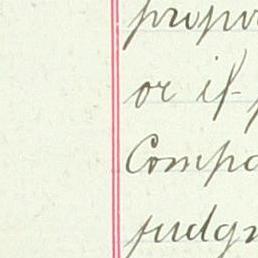 propo
or if
Compa
judgm